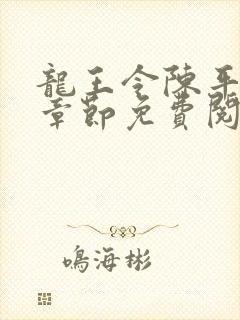 龍王令陳平
章節免費閱
鳴海彬